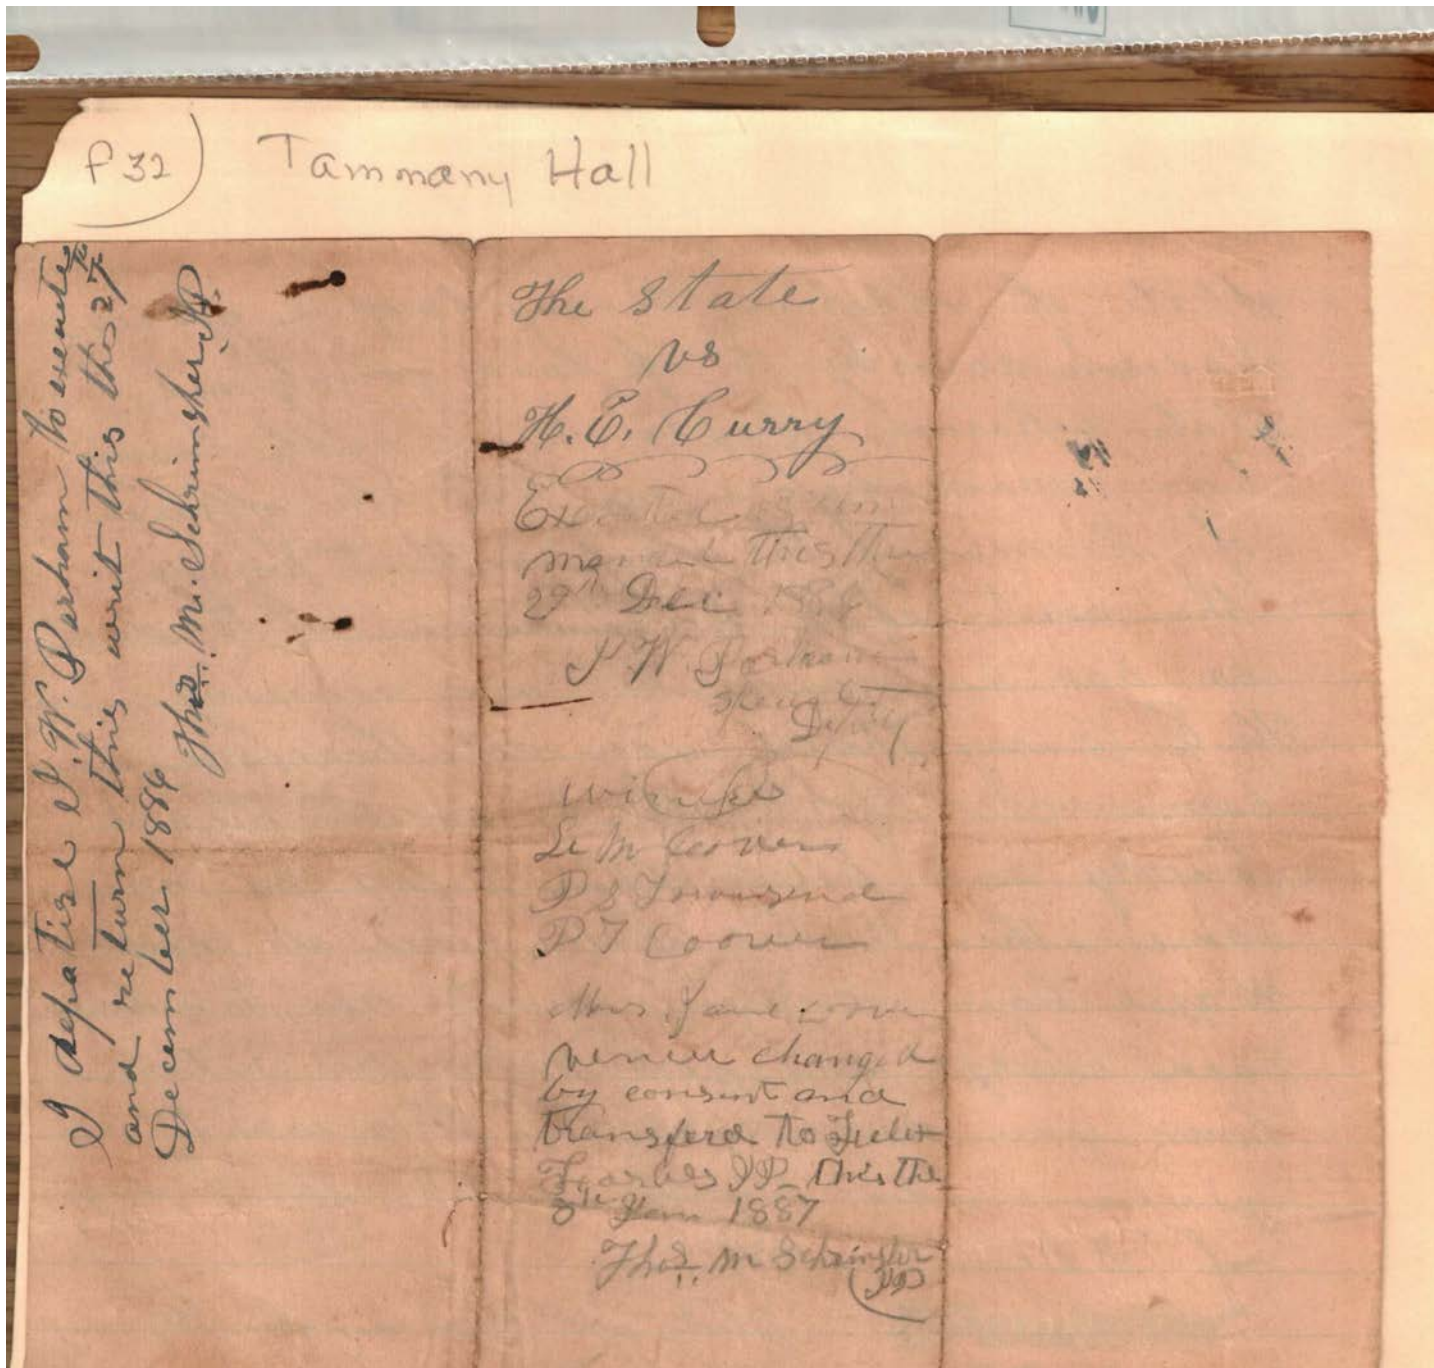 P 32) Tammany Hall
I depatise I. W. Parham to execute
and return this writ this the 27th
December 1886
Thos. M. Schrimsher JP
The State
vs
H. E. Curry
Executed as sum
moned this the
29th Dec 1886
I W. Parham
Special
Deputy
Witnesses
P S Townsend
P T Coover
Mrs Jane
venue changed
by consent and
transferd to
JP this the
8th Jan 1887
Thos. M Schrimsher
JP